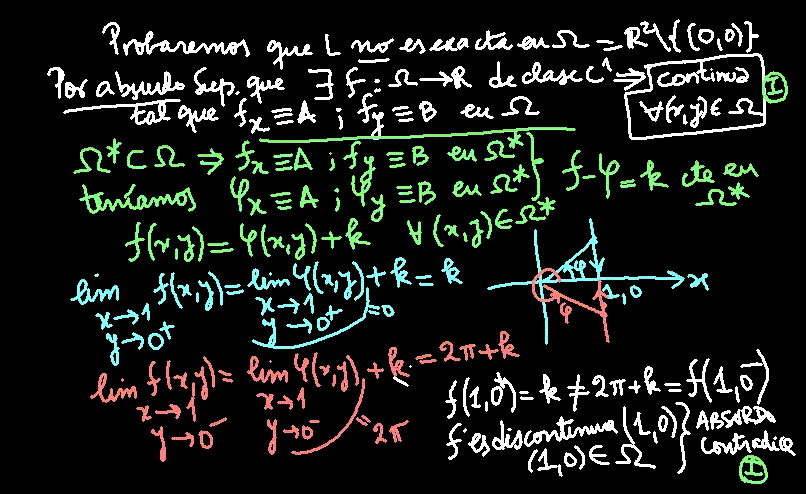 Probaremos que L no es exacta en Ω = R²\{(0,0)}
Por absurdo Sup. que ∃ f: Ω → R de clase C¹ ⇒ continua ∀(x,y) ∈ Ω I
tal que fx ≡ A ; fy ≡ B en Ω
Ω* ⊂ Ω ⇒ fx ≡ A ; fy ≡ B en Ω*
teníamos φx ≡ A ; φy ≡ B en Ω* } f-φ = k cte en Ω*
f(x,y) = φ(x,y) + k ∀ (x,y) ∈ Ω*
lim f(x,y) = lim φ(x,y) + k = k
x→1 x→1 = 0
y→0⁺ y→0⁺
φ x
φ 1,0
lim f(x,y) = lim φ(x,y) + k = 2π + k
x→1 x→1
y→0⁻ y→0⁻ = 2π
f(1,0⁺) = k ≠ 2π + k = f(1,0⁻)
f es discontinua (1,0) } ABSURDO
(1,0) ∈ Ω contradice
I